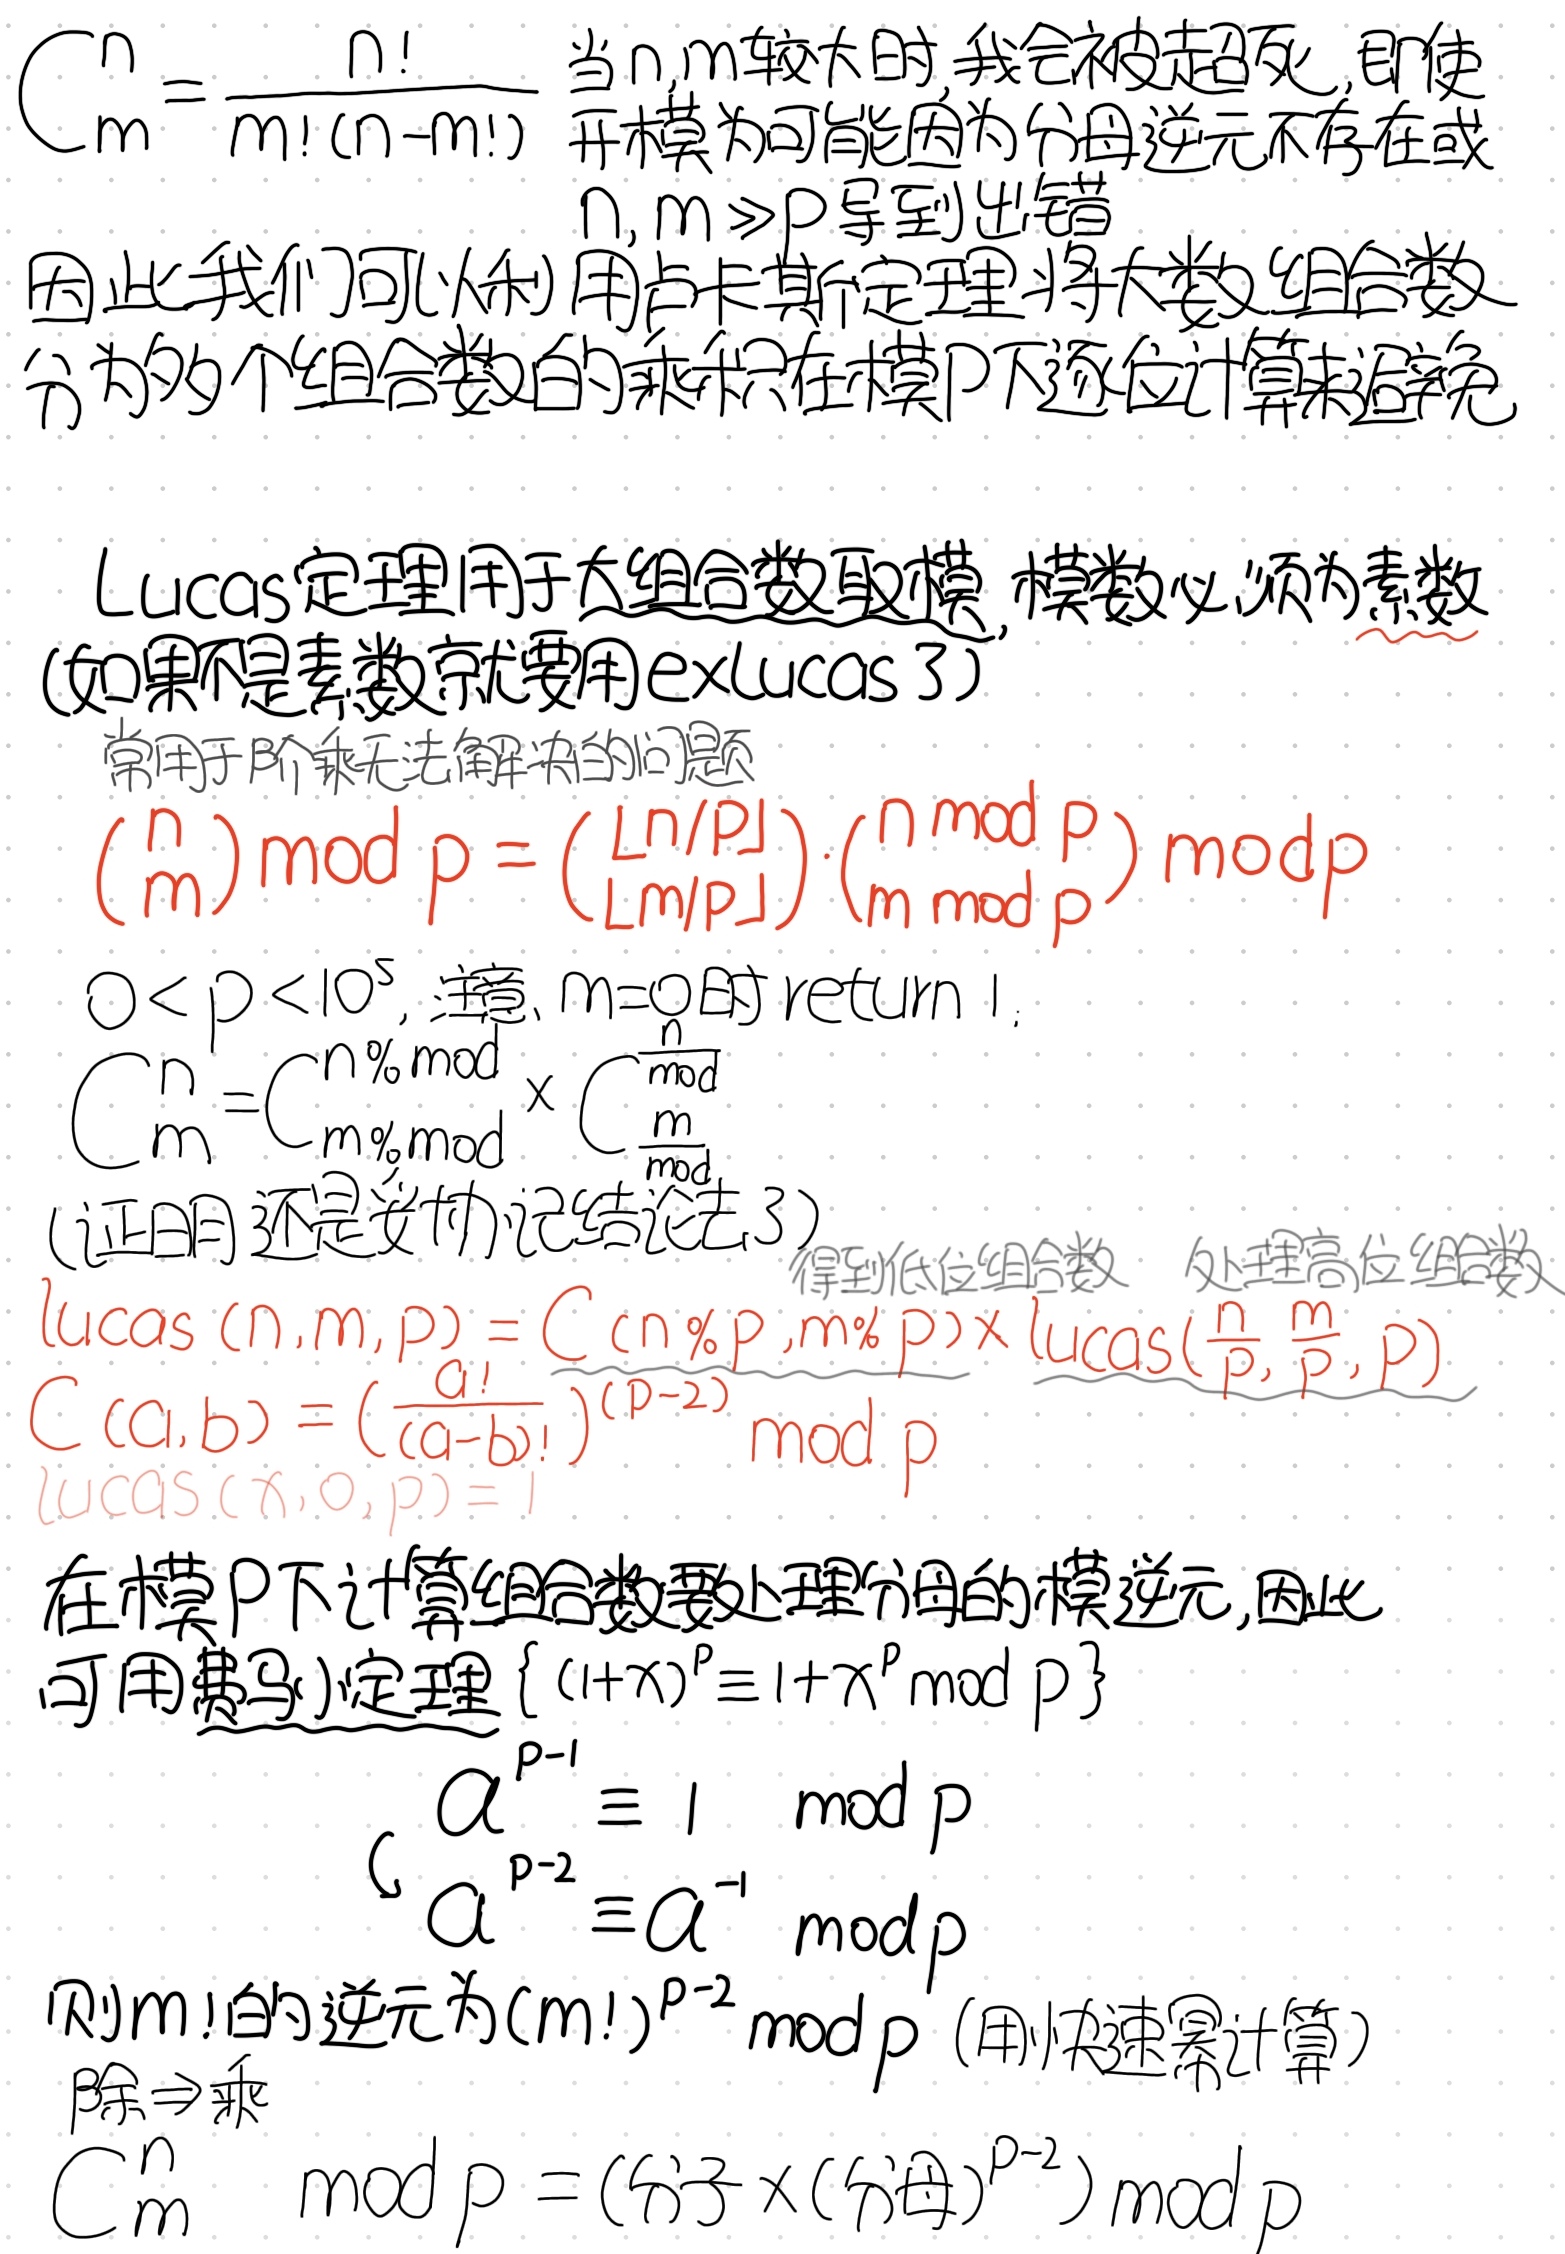 C n m = n! / m!(n-m!) 当n,m较大时,我会被超死,即使
开模为可能因为分母逆元不存在或
n,m≫p导到出错
因此我们可以利用占卡斯定理将大数组合数
分为多个组合数的乘积在模P下逐位计算来避免
Lucas定理用于大组合数取模,模数必须为素数
(如果不是素数就要用exlucas3)
常用于阶乘无法解决的问题
(n m) mod p = (⌊n/p⌋ ⌊m/p⌋)·(n mod p m mod p) mod p
0<p<10^5,注意、m=0时return 1;
C n m = C n%mod m%mod × C n/mod m/mod
(证明还是说去记结论去3)
得到低位组合数 处理高位组合数
lucas(n,m,p)=C(n%p,m%p)×lucas(n/p,m/p,p)
C(a,b)=(a!/(a-b)!)^(p-2) mod p
lucas(x,0,p)=1
在模P下计算组合数要处理分母的模逆元,因此
可用费马小定理{(1+x)^p≡1+x^p mod p}
a^p-1 ≡ 1 mod p
a^p-2 ≡ a^-1 mod p
则m!的逆元为(m!)^p-2 mod p (用快速幂计算)
除⇒乘
C n m mod p = (分子×(分母)^p-2) mod p